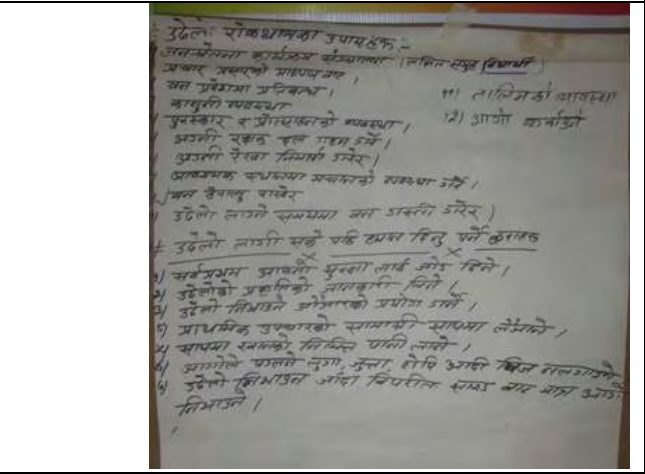 डढेलो रोकथामका उपायहरु :-
जनचेतना कार्यक्रम संचालन (लक्षित समुह विद्यार्थी)
प्रचार प्रसारको माध्यम बाट
वन प्रवेशमा प्रतिबन्ध ।
कानुनी व्यवस्था
पुरस्कार र प्रोत्साहनको व्यवस्था ।
अग्नी रक्षक दल गठन गर्ने ।
अग्नी रेखा निर्माण गरेर ।
आवश्यक स्थानमा मचानको व्यवस्था गर्ने ।
वन हेरालु राखेर
डढेलो लाग्ने समयमा वन गस्ती गरेर ।
11) तालिमको व्यवस्था
12) आगो
डढेलो लागी सके पछि ध्यान दिनु पर्ने कुराहरु
1) सर्वप्रथम आफ्नो सुरक्षा लाई जोड दिने ।
2) डढेलोको प्रकृतिको जानकारी लिने ।
3) डढेलो निभाउने औजारको प्रयोग गर्ने ।
प्राथमिक उपचारको सामाग्री साथमा लैजाने ।
साथमा खानको निम्ति पानी लाने ।
आगोले चल्ने लुगा, जुत्ता, टोपि आदी चिज नलगाउने
डढेलो निभाउन जाँदा विपरीत बाट मात्र आगो
निभाउने ।